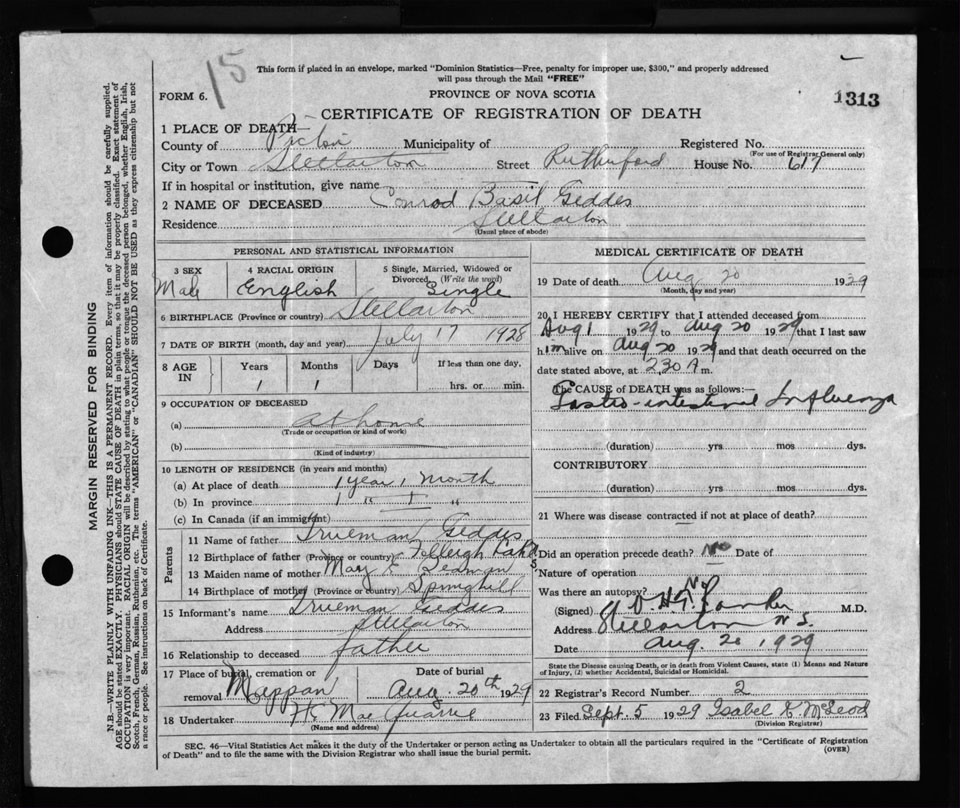 15
This form if placed in an envelope, marked "Dominion Statistics—Free, penalty for improper use, $300," and properly addressed
will pass through the Mail "FREE"
FORM 6.
PROVINCE OF NOVA SCOTIA
1313
CERTIFICATE OF REGISTRATION OF DEATH
1 PLACE OF DEATH—
County of Pictou Municipality of Registered No.
(For use of Registrar General only)
City or Town Stellarton Street Rutherford House No. 617
If in hospital or institution, give name
2 NAME OF DECEASED Conrod Basil Geddes
Residence Stellarton
(Usual place of abode)
PERSONAL AND STATISTICAL INFORMATION
3 SEX Male 4 RACIAL ORIGIN English 5 Single, Married, Widowed or Divorced. (Write the word) Single
6 BIRTHPLACE (Province or country) Stellarton
7 DATE OF BIRTH (month, day and year) July 17 1928
8 AGE IN Years 1 Months 1 Days If less than one day, hrs. or min.
9 OCCUPATION OF DECEASED
(a) at home
(Trade or occupation or kind of work)
(b)
(Kind of industry)
10 LENGTH OF RESIDENCE (in years and months)
(a) At place of death 1 year 1 month
(b) In province 1 " 1 "
(c) In Canada (if an immigrant)
Parents
11 Name of father Trueman Geddes
12 Birthplace of father (Province or country)
13 Maiden name of mother Mary E.
14 Birthplace of mother (Province or country) Springhill
15 Informant's name Trueman Geddes
Address Stellarton
16 Relationship to deceased father
17 Place of burial, cremation or removal Mappan Date of burial Aug. 20th 1929
18 Undertaker H. MacQuarrie
(Name and address)
MEDICAL CERTIFICATE OF DEATH
19 Date of death Aug 20 1929
(Month, day and year)
20 I HEREBY CERTIFY that I attended deceased from
Aug 1 1929 to Aug 20 1929 that I last saw
him alive on Aug 20 1929 and that death occurred on the
date stated above, at 2.30 A m.
The CAUSE OF DEATH was as follows:—
Gastro-intestinal Influenza
(duration) yrs mos dys.
CONTRIBUTORY
(duration) yrs mos dys.
21 Where was disease contracted if not at place of death?
Did an operation precede death? No Date of
Nature of operation
Was there an autopsy? No
(Signed) M.D.
Address Stellarton N.S.
Date Aug. 20, 1929
State the Disease causing Death, or in death from Violent Causes, state (1) Means and Nature
of Injury, (2) whether Accidental, Suicidal or Homicidal.
22 Registrar's Record Number 2
23 Filed Sept. 5 1929 Isabel K. McLeod
(Division Registrar)
SEC. 46—Vital Statistics Act makes it the duty of the Undertaker or person acting as Undertaker to obtain all the particulars required in the "Certificate of Registration
of Death" and to file the same with the Division Registrar who shall issue the burial permit.
(OVER)
MARGIN RESERVED FOR BINDING
N.B.—WRITE PLAINLY WITH UNFADING INK—THIS IS A PERMANENT RECORD. Every item of information should be carefully supplied.
AGE should be stated EXACTLY. PHYSICIANS should STATE CAUSE OF DEATH in plain terms, so that it may be properly classified. Exact statement of
OCCUPATION is very important. RACIAL ORIGIN will be described by stating to what people or tongue the deceased person belonged, whether English, Irish,
Scotch, French, German, Russian, Ruthenian, etc. The terms "AMERICAN" or "CANADIAN" SHOULD NOT BE USED as they express citizenship but not
a race or people. See instructions on back of Certificate.